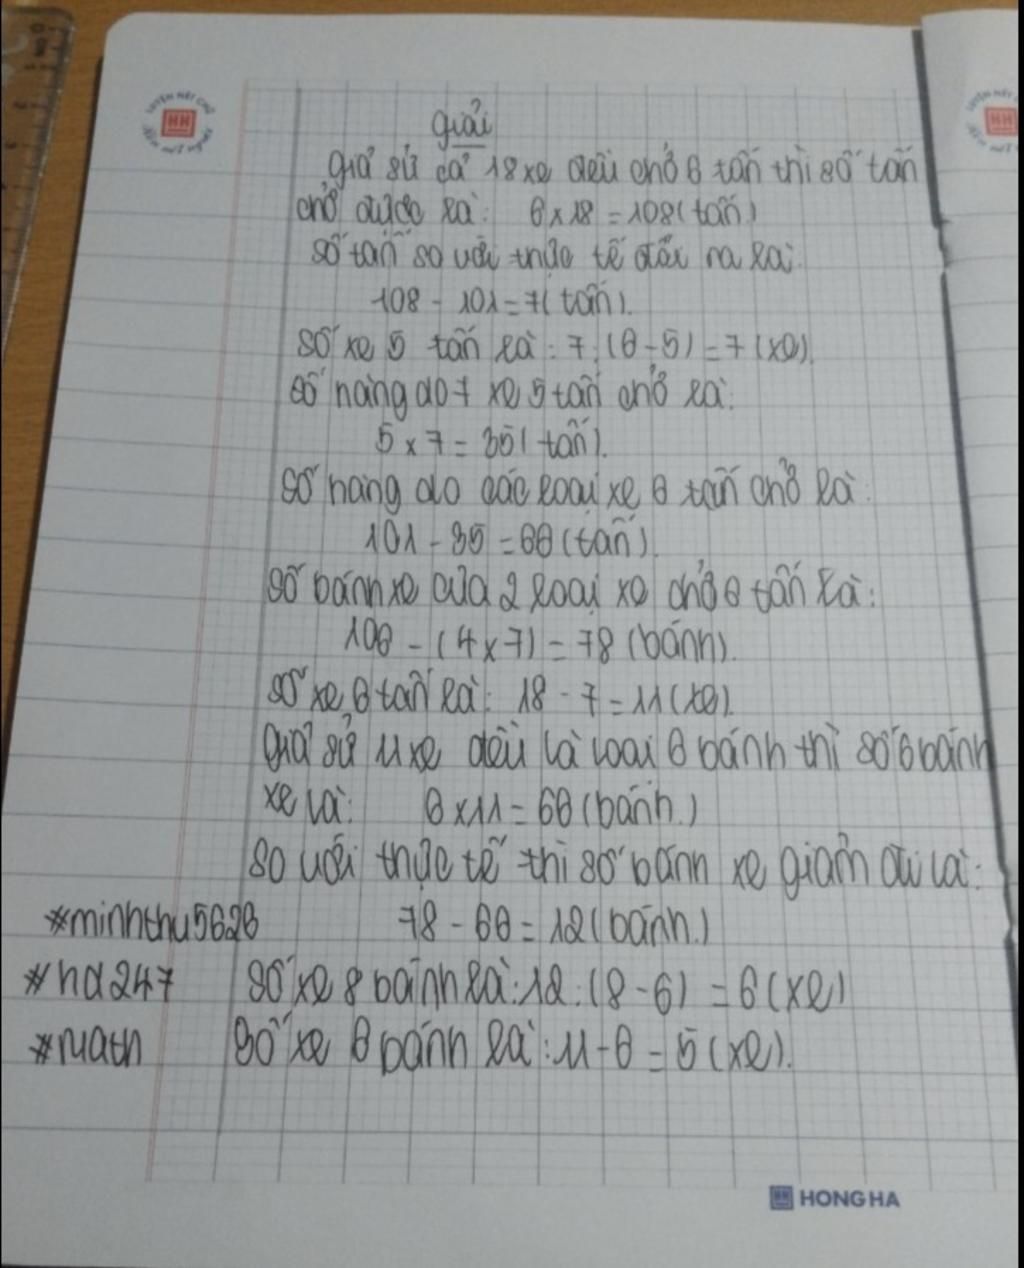 Giải
Giả sử cả 18 xe đều chở 6 tấn thì số tấn
chở được là: 6 x 18 = 108 (tấn)
Số tấn so với thực tế dôi ra là:
108 - 101 = 7 (tấn).
Số xe 5 tấn là: 7 : (6 - 5) = 7 (xe).
Số hàng do 7 xe 5 tấn chở là:
5 x 7 = 35 (tấn).
Số hàng do các loại xe 6 tấn chở là:
101 - 35 = 66 (tấn).
Số bánh xe của 2 loại xe chở 6 tấn là:
106 - (4 x 7) = 78 (bánh).
Số xe 6 tấn là: 18 - 7 = 11 (xe).
Giả sử 11 xe đều là loại 6 bánh thì số bánh
xe là: 6 x 11 = 66 (bánh.)
So với thực tế thì số bánh xe giảm đi là:
#minhthu5626 78 - 66 = 12 (bánh.)
#hd247 Số xe 8 bánh là: 12 : (8 - 6) = 6 (xe)
#math Số xe 6 bánh là: 11 - 6 = 5 (xe).
HH HONG HA